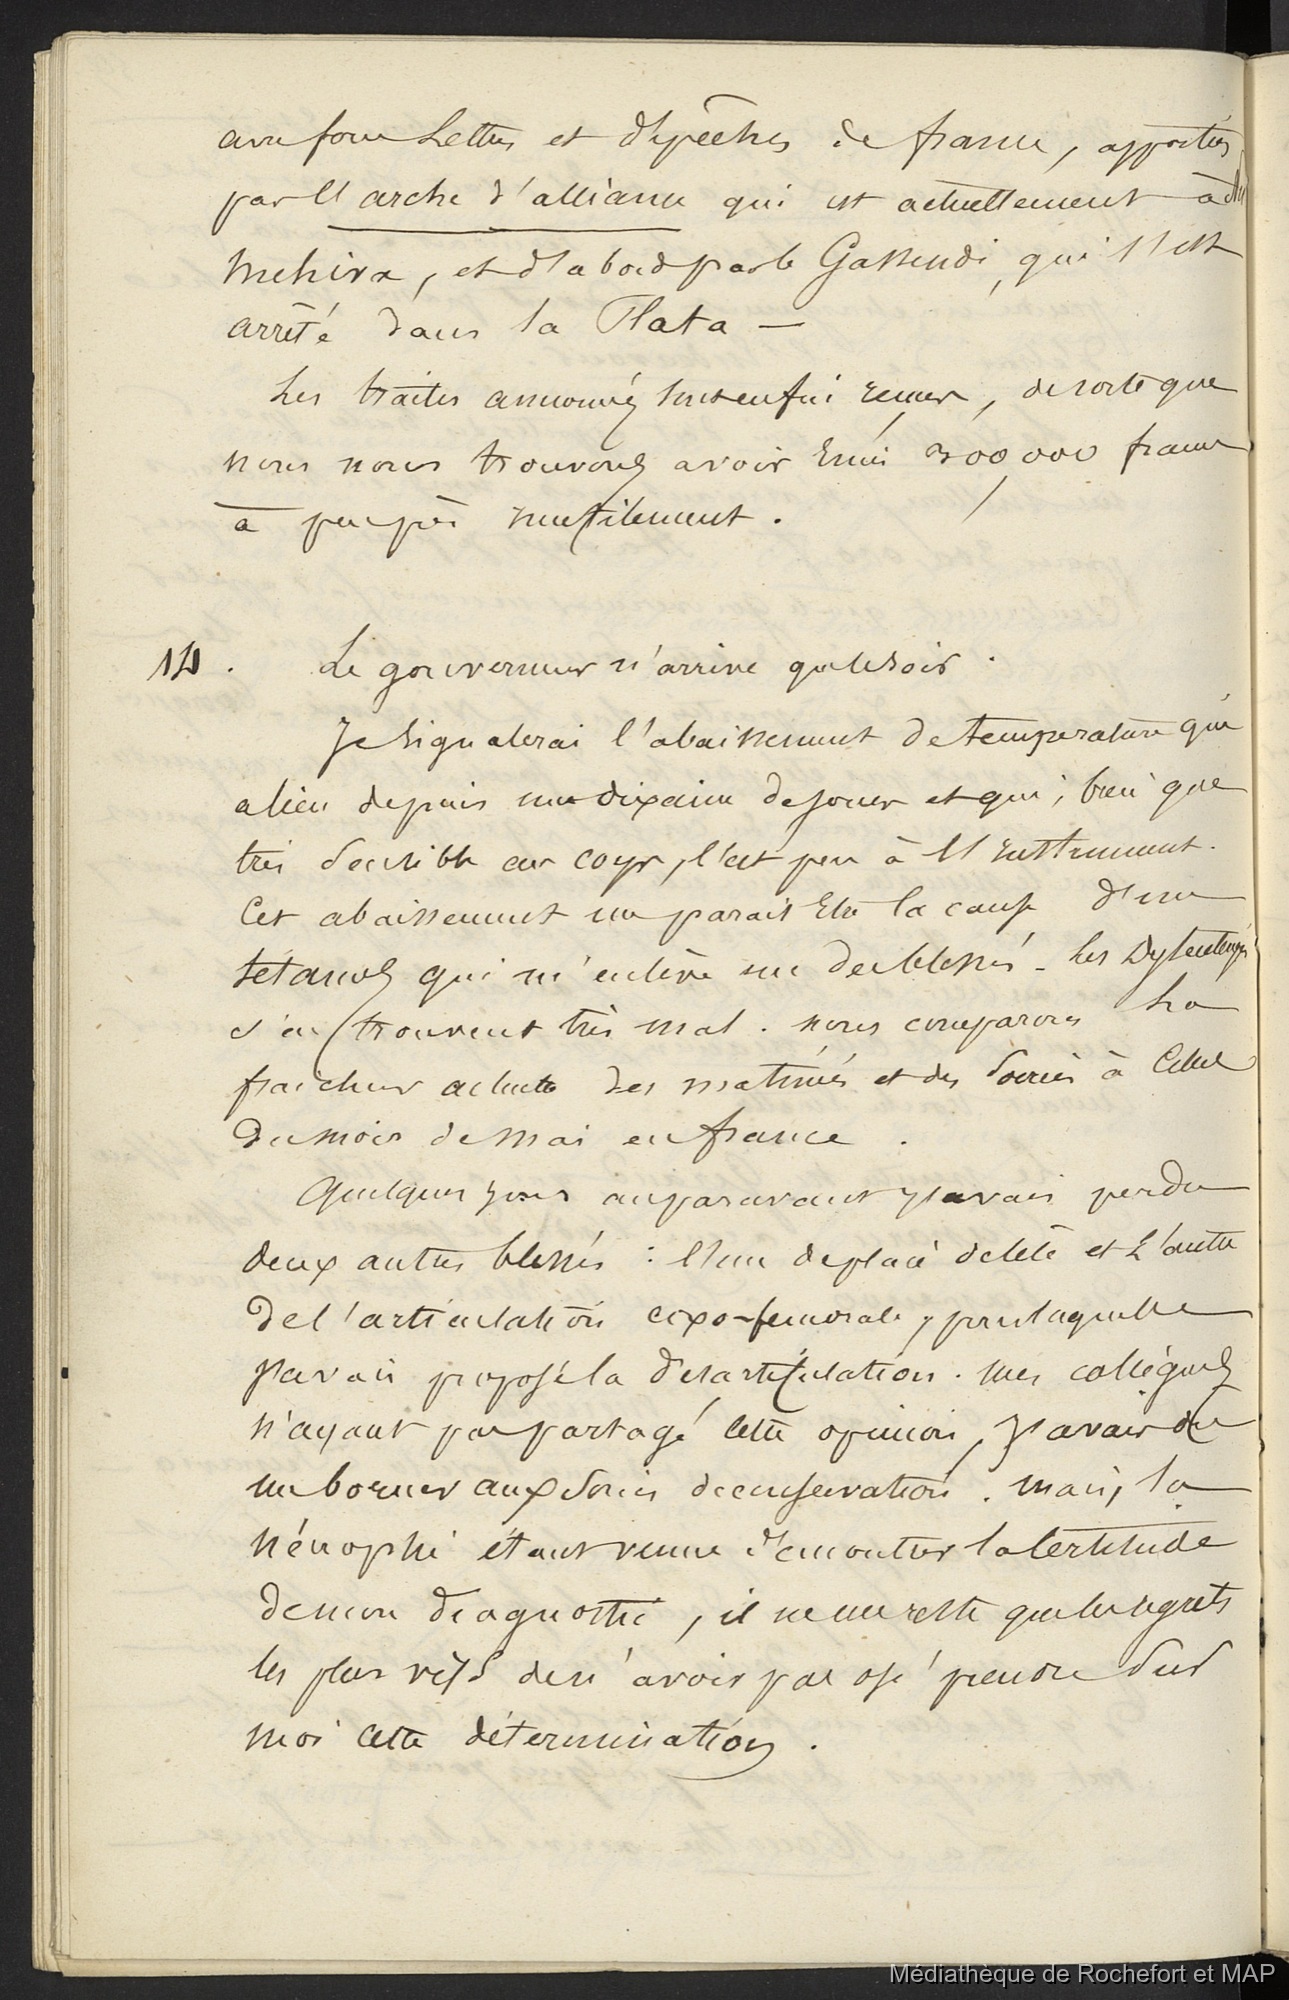 avons lettres et dépêches de france, apportées
par l'arche d'alliance qui est actuellement à
, et d'abord par le Gassendi, qui s'est
arrêté dans la Plata —
Les traites annoncées sont enfin venues, de sorte que
nous nous trouvons avoir émis 300,000 francs
à peu près inutilement.
14. Le gouverneur n'arrive que le soir.
Je signalerai l'abaissement de température qui
a lieu depuis une dixaine de jours et qui, bien que
très sensible au corps, l'est peu à l'instrument.
Cet abaissement me parait être la cause d'un
tétanos qui m'enlève un des blessés. Les Dysentériques
s'en trouvent très mal. nous comparons la
fraicheur actuelle des matinées et des soirées à celle
du mois de mai en france.
Quelques jours auparavant j'avais perdu
deux autres blessés : l'un de plaie de tête et l'autre
de l'articulation coxo-femorale, pour laquelle
j'avais proposé la désarticulation. mes collègues
n'ayant pas partagé cette opinion, j'avais dû
me borner aux soins de conservation. mais, la
nécropsie étant venue démontrer la certitude
de mon diagnostic, il ne me reste que les regrets
les plus vifs de n'avoir pas osé prendre sur
moi cette détermination.
Médiathèque de Rochefort et MAP